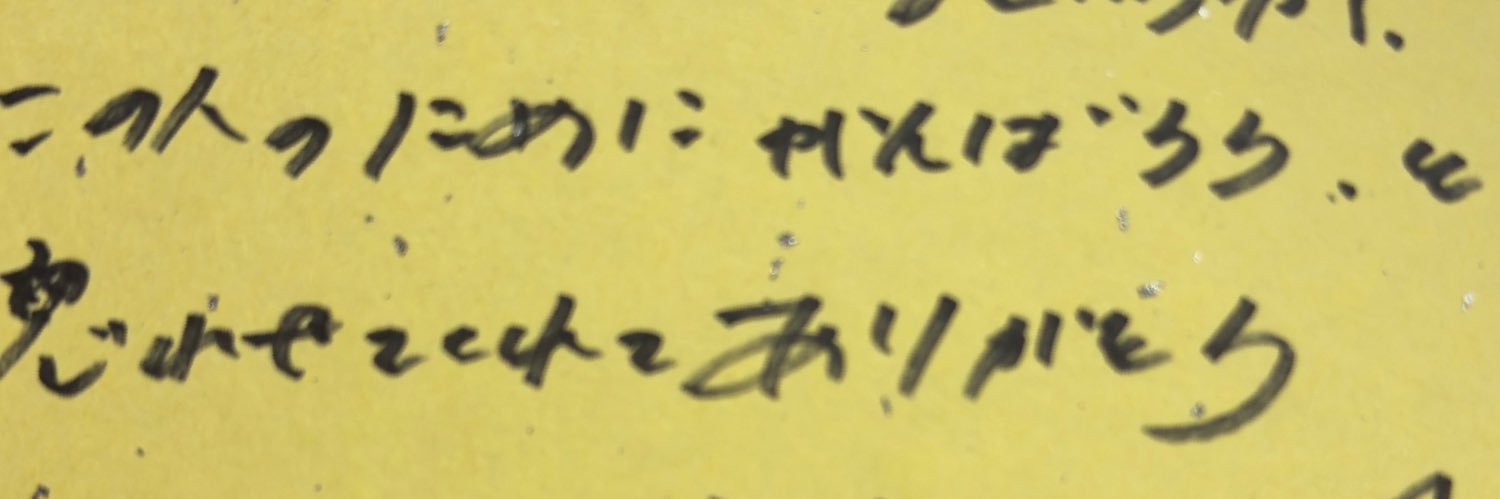 この人のためにがんばろう、と
思わせてくれてありがとう